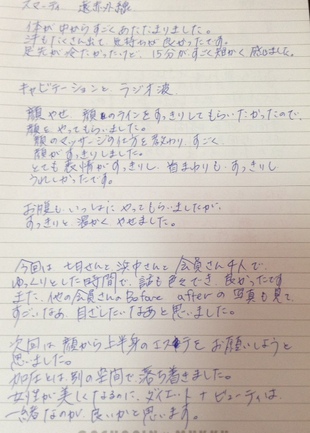 スマーティ 遠赤外線
体が中からすごくあたたまりました。
汗もたくさん出て、気持ちが良かったです。
足先が冷たかったけど、15分がすごく短かく感じました。
キャビテーションと、ラジオ波
顔やせ、顔のラインをすっきりしてもらいたかったので、
顔を、やってもらいました。
顔のマッサージの仕方を教わり、すごく
顔がすっきりしました。
とても表情がすっきりし、首まわりも、すっきりし
うれしかったです。
お腹も、いっしょにやってもらいましたが、
すっきりと、温かくやせました。
今回は、七目さんと浜中さんと会員さん4人で、
ゆっくりとした時間で、話も色々でき、良かったです
また、他の会員さんのBefore afterの写真も見て
すごいなあ、目ざしたいなあと思いました。
次回は、顔から上半身のエステをお願いしようと
思いました。
加圧とは、別の空間で、落ち着きました。
女性が美しくなるのに、ダイエット+ビューティは、
一緒なのが、良いかと思います。